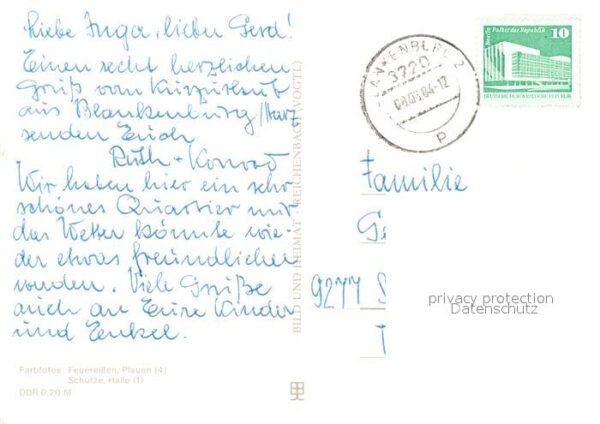 Liebe Inga, lieber Gerd!
Einen recht herzlichen
Gruß vom Kurzurlaub
aus Blankenburg/Harz
senden Euch
Ruth + Konrad
Wir haben hier ein sehr
schönes Quartier nur
das Wetter könnte wie-
der etwas freundlicher
werden. Viele Grüße
auch an Eure Kinder
und Enkel.
Farbfotos: Feuereißen, Plauen (4)
Schütze, Halle (1)
DDR 0,20 M
BILD UND HEIMAT · REICHENBACH (VOGTL)
BLANKENBURG 2
3720
08.05.84-12
P
Berlin Palast der Republik 10
DEUTSCHE DEMOKRATISCHE REPUBLIK
Familie
9277
privacy protection
Datenschutz